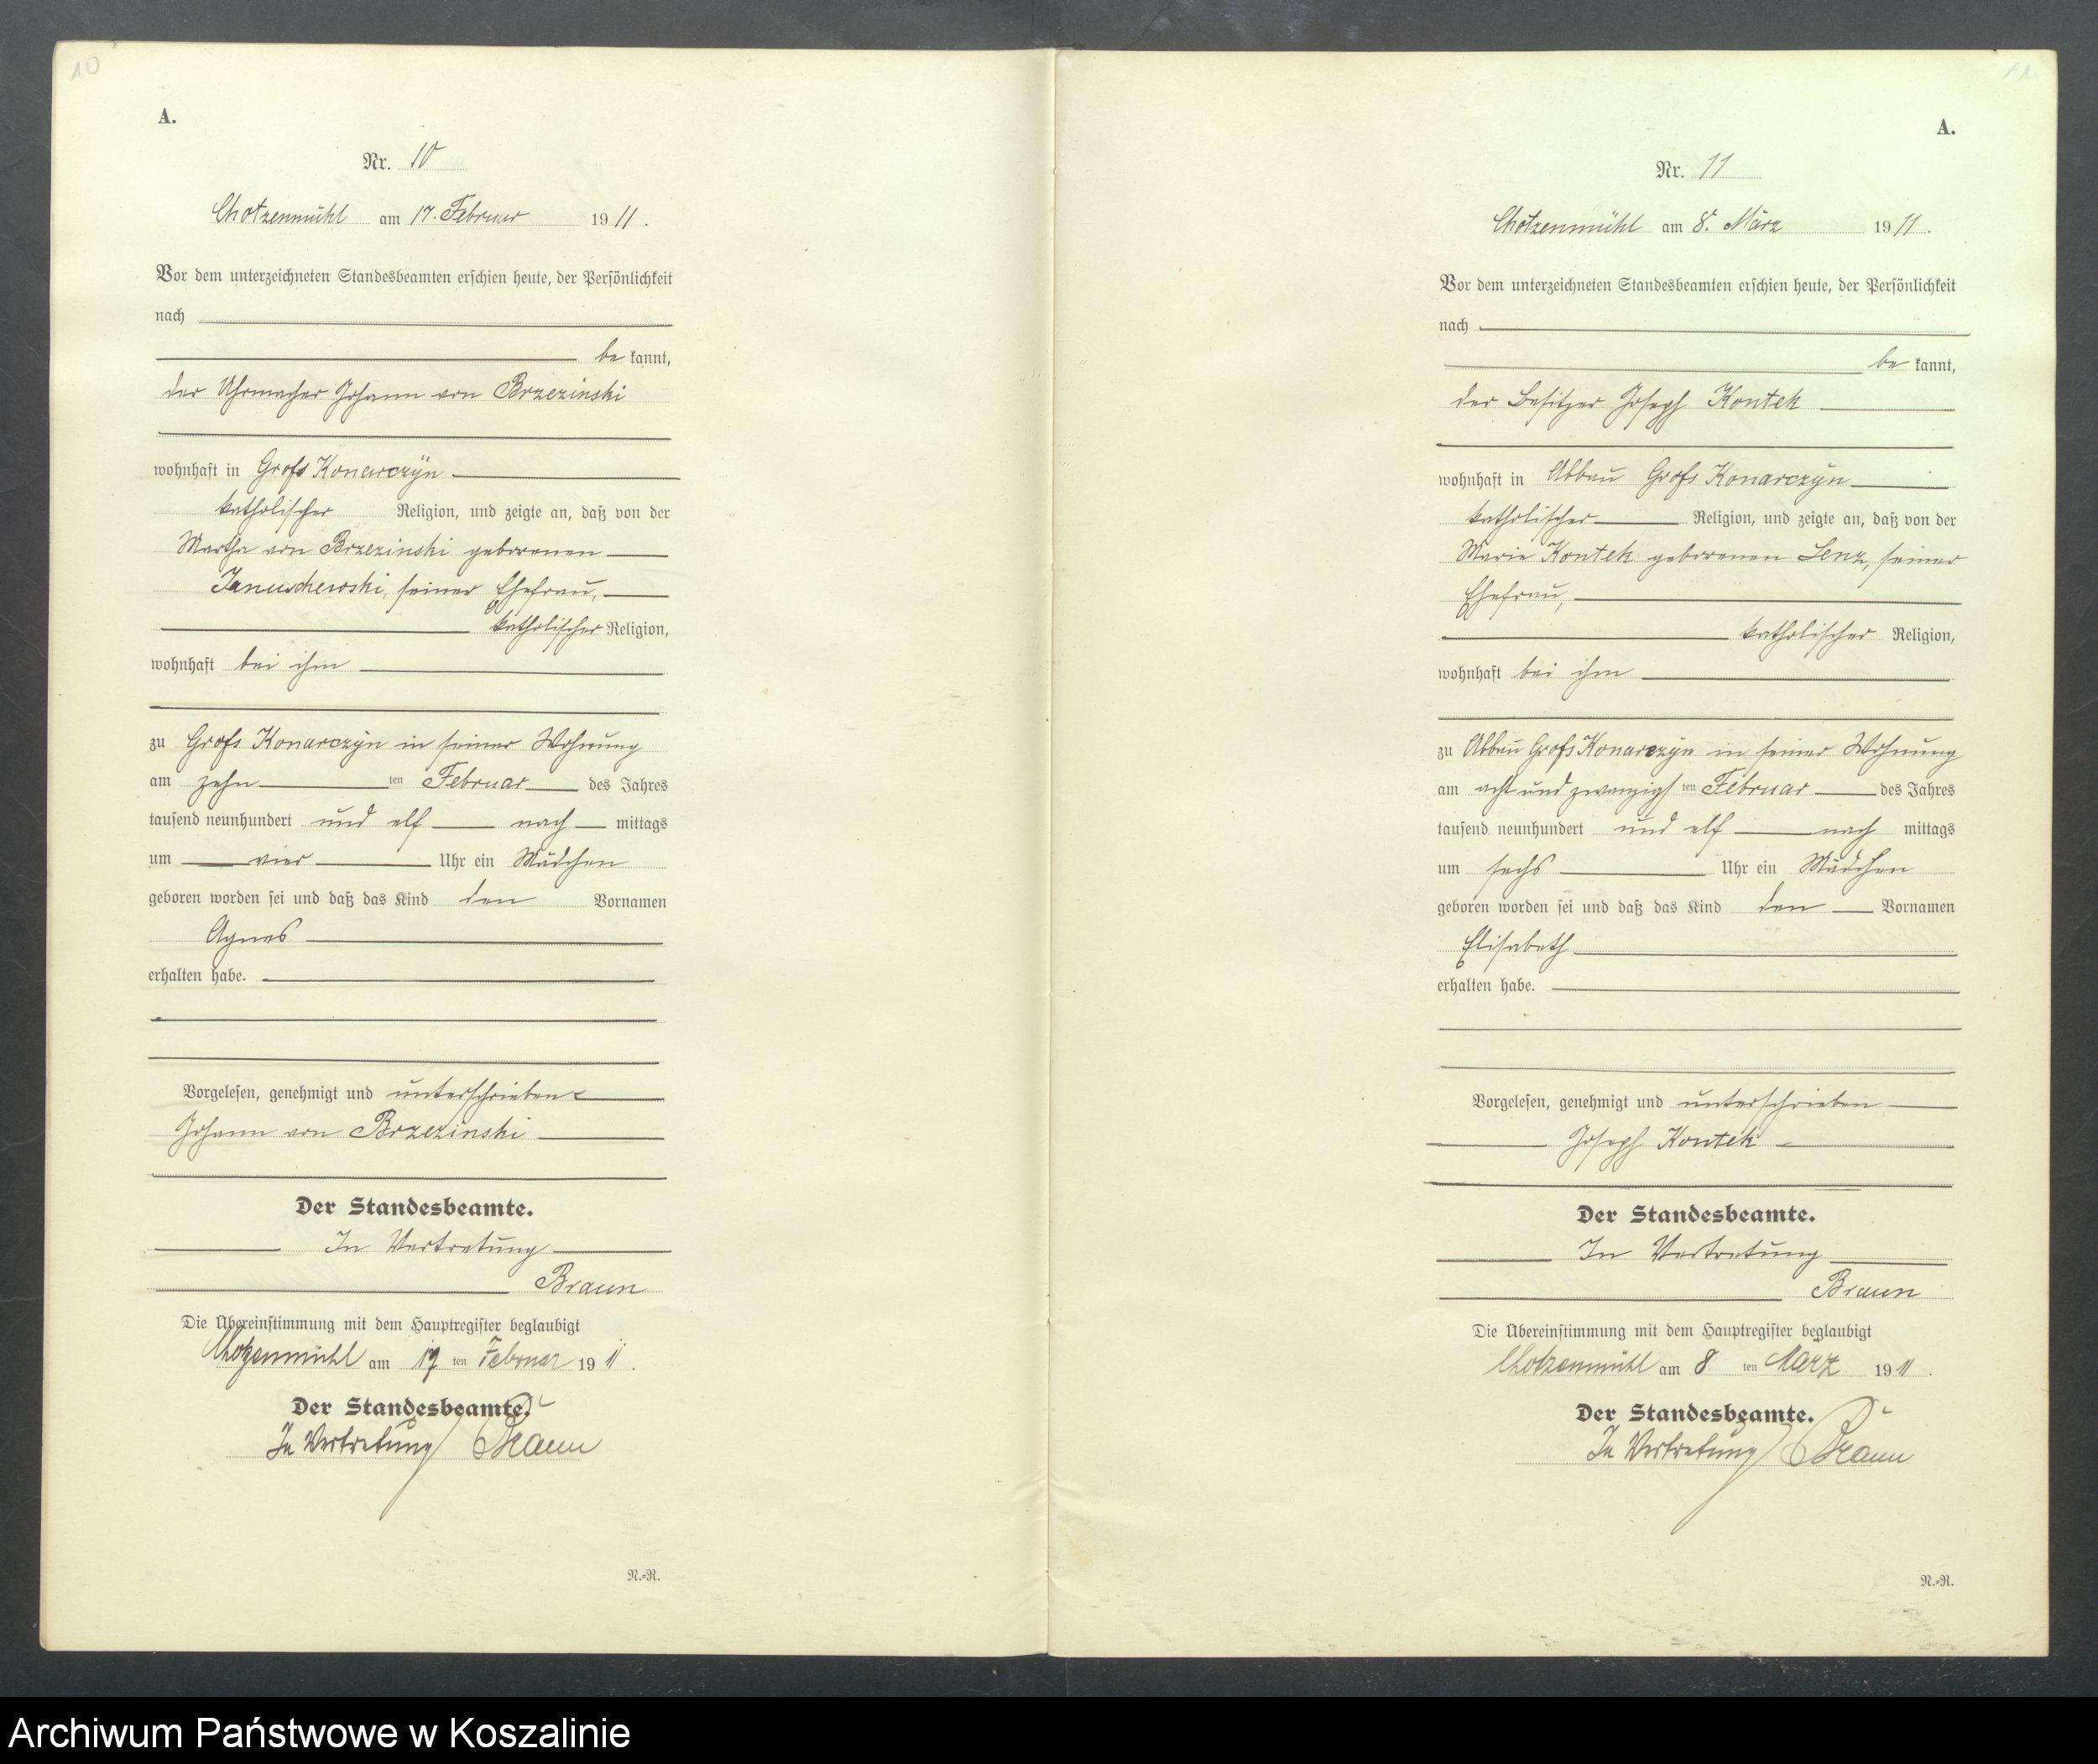 10
A.
Nr. 10
Chotzenmühl am 17. Februar 1911.
Vor dem unterzeichneten Standesbeamten erschien heute, der Persönlichkeit
nach
be kannt,
der Uhrmacher Johann von Brzezinski
wohnhaft in Groß Konarczyn
katholischer Religion, und zeigte an, daß von der
Martha von Brzezinski geborenen
Januschewski, seiner Ehefrau,
katholischer Religion,
wohnhaft bei ihm
zu Groß Konarczyn in seiner Wohnung
am zehn ten Februar des Jahres
tausend neunhundert und elf nach mittags
um vier Uhr ein Mädchen
geboren worden sei und daß das Kind den Vornamen
Agnes
erhalten habe.
Vorgelesen, genehmigt und unterschrieben
Johann von Brzezinski
Der Standesbeamte.
In Vertretung
Braun
Die Übereinstimmung mit dem Hauptregister beglaubigt
Chotzenmühl am 17 ten Februar 1911.
Der Standesbeamte.
In Vertretung Braun
N.-R.
11
A.
Nr. 11
Chotzenmühl am 8. März 1911.
Vor dem unterzeichneten Standesbeamten erschien heute, der Persönlichkeit
nach
be kannt,
der Besitzer Joseph Kontek
wohnhaft in Abbau Groß Konarczyn
katholischer Religion, und zeigte an, daß von der
Marie Kontek geborenen Lenz, seiner
Ehefrau,
katholischer Religion,
wohnhaft bei ihm
zu Abbau Groß Konarczyn in seiner Wohnung
am acht und zwanzigs ten Februar des Jahres
tausend neunhundert und elf nach mittags
um sechs Uhr ein Mädchen
geboren worden sei und daß das Kind den Vornamen
Elisabeth
erhalten habe.
Vorgelesen, genehmigt und unterschrieben
Joseph Kontek
Der Standesbeamte.
In Vertretung
Braun
Die Übereinstimmung mit dem Hauptregister beglaubigt
Chotzenmühl am 8 ten März 1911.
Der Standesbeamte.
In Vertretung Braun
N.-R.
Archiwum Państwowe w Koszalinie